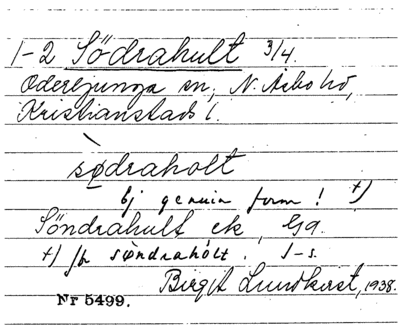 1-2 Södrahult 3/4.
Oderljunga sn, N. Åsbo hd,
Kristianstads l.
sødraholt
Ej genuin form! +)
Söndrahult ek,
+) for søndrahólt. I-s.
Birgit Lundkvist, 1938.
Nr 5499.